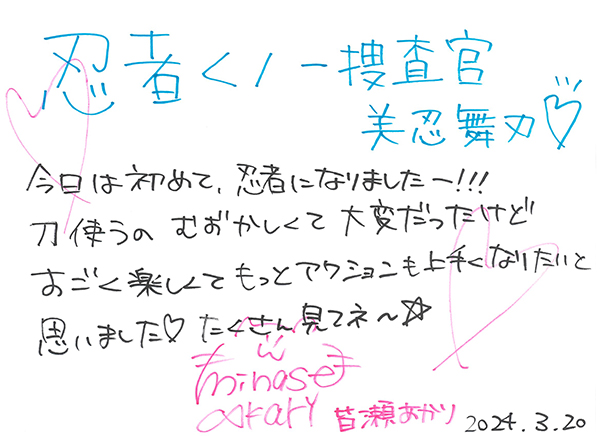 忍者くノ一捜査官
美忍舞刃♡
今日は初めて、忍者になりましたー!!!
刀使うの むずかしくて 大変だったけど
すごく楽しくて もっとアクションも上手くなりたいと
思いました♡ たくさん見てネ〜☆
minase
akari 皆瀬あかり 2024.3.20